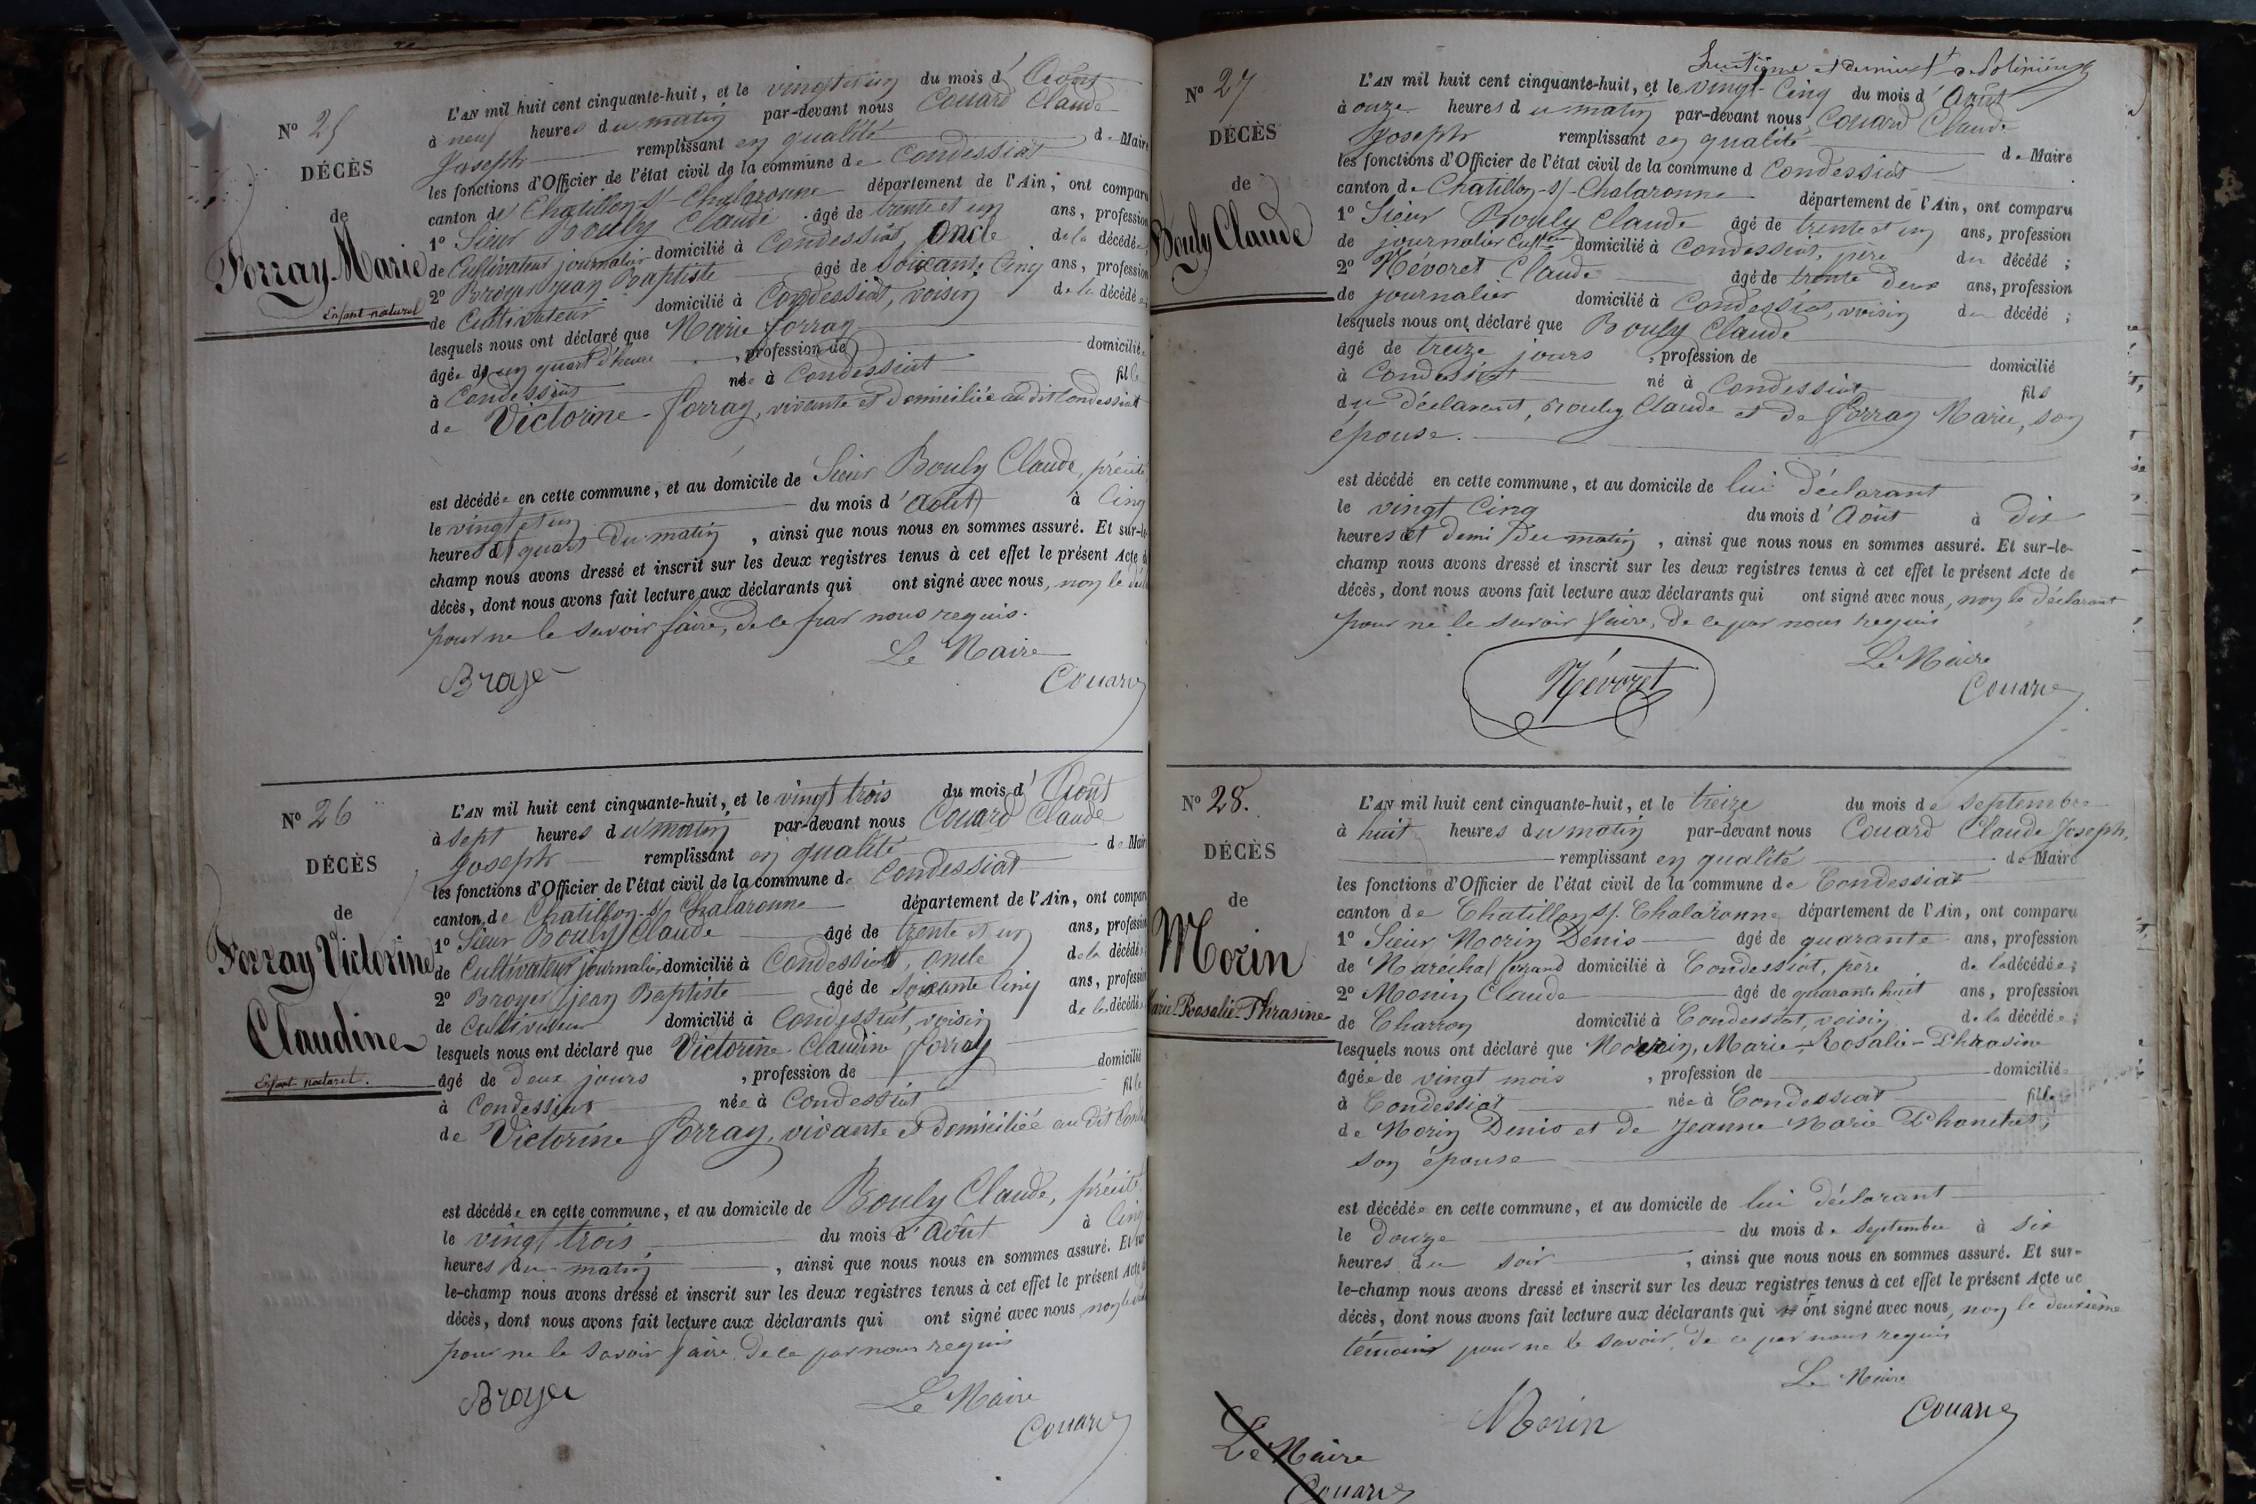 N° 25
DÉCÈS
de
Forray Marie
Enfant naturel
L'AN mil huit cent cinquante-huit, et le vingt et un du mois d'Août
à neuf heures du matin par-devant nous Couard Claude
Joseph remplissant en qualité de Maire
les fonctions d'Officier de l'état civil de la commune de Condessiat
canton de Chatillon-s/-Chalaronne département de l'Ain, ont comparu
1° Sieur Bouly Claude âgé de trente et un ans, profession
de Cultivateur journalier domicilié à Condessiat, oncle de la décédée
2° Broyer Jean Baptiste âgé de soixante Cinq ans, profession
de Cultivateur domicilié à Condessiat, voisin de la décédée
lesquels nous ont déclaré que Marie Forray
âgée d'un quart d'heure, profession de domiciliée
à Condessiat née à Condessiat fille
de Victorine Forray, vivante et domiciliée au dit Condessiat
est décédée en cette commune, et au domicile de Sieur Bouly Claude, précité
le vingt et un du mois d'Août à Cinq
heures et quart du matin, ainsi que nous nous en sommes assuré. Et sur-le-
champ nous avons dressé et inscrit sur les deux registres tenus à cet effet le présent Acte de
décès, dont nous avons fait lecture aux déclarants qui ont signé avec nous, non le
pour ne le savoir faire, de ce par nous requis.
Le Maire
Broyer Couard
N° 26
DÉCÈS
de
Forray Victorine
Claudine
Enfant naturel.
L'AN mil huit cent cinquante-huit, et le vingt trois du mois d'Août
à sept heures du matin par-devant nous Couard Claude
Joseph remplissant en qualité de Maire
les fonctions d'Officier de l'état civil de la commune de Condessiat
canton de Chatillon-s/-Chalaronne département de l'Ain, ont comparu
1° Sieur Bouly Claude âgé de trente et un ans, profession
de Cultivateur journalier domicilié à Condessiat, oncle de la décédée
2° Broyer Jean Baptiste âgé de soixante Cinq ans, profession
de Cultivateur domicilié à Condessiat, voisin de la décédée
lesquels nous ont déclaré que Victorine Claudine Forray
âgé de deux jours, profession de domicilié
à Condessiat née à Condessiat fille
de Victorine Forray, vivante et domiciliée au dit
est décédée en cette commune, et au domicile de Bouly Claude, précité
le vingt trois du mois d'Août à Cinq
heures du matin, ainsi que nous nous en sommes assuré. Et sur
le-champ nous avons dressé et inscrit sur les deux registres tenus à cet effet le présent Acte de
décès, dont nous avons fait lecture aux déclarants qui ont signé avec nous non le
pour ne le savoir faire de ce par nous requis
Broyer Le Maire
Couard
N° 27
DÉCÈS
de
Bouly Claude
L'AN mil huit cent cinquante-huit, et le vingt-Cinq du mois d'Août
à onze heures du matin par-devant nous Couard Claude
Joseph remplissant en qualité de Maire
les fonctions d'Officier de l'état civil de la commune d Condessiat
canton de Chatillon-s/-Chalaronne département de l'Ain, ont comparu
1° Sieur Bouly Claude âgé de trente et un ans, profession
de journalier domicilié à Condessiat, père du décédé ;
2° Névoret Claude âgé de trente deux ans, profession
de journalier domicilié à Condessiat, voisin du décédé ;
lesquels nous ont déclaré que Bouly Claude
âgé de treize jours, profession de domicilié
à Condessiat né à Condessiat fils
du déclarant, Bouly Claude et de Forray Marie, son
épouse.
est décédé en cette commune, et au domicile de lui déclarant
le vingt Cinq du mois d'Août à dix
heures et demi du matin, ainsi que nous nous en sommes assuré. Et sur-le-
champ nous avons dressé et inscrit sur les deux registres tenus à cet effet le présent Acte de
décès, dont nous avons fait lecture aux déclarants qui ont signé avec nous, non le déclarant
pour ne le savoir faire, de ce par nous requis
Le Maire
Névoret Couard
N° 28.
DÉCÈS
de
Morin
Marie-Rosalie-Phrasine
L'AN mil huit cent cinquante-huit, et le treize du mois de septembre
à huit heures du matin par-devant nous Couard Claude Joseph,
remplissant en qualité de Maire
les fonctions d'Officier de l'état civil de la commune de Condessiat
canton de Chatillon s/. Chalaronne département de l'Ain, ont comparu
1° Sieur Morin Denis âgé de quarante ans, profession
de Maréchal ferrand domicilié à Condessiat, père de la décédée ;
2° Monin Claude âgé de quarante huit ans, profession
de Charron domicilié à Condessiat, voisin de la décédée ;
lesquels nous ont déclaré que Morin, Marie-Rosalie-Phrasine
âgée de vingt mois, profession de domiciliée
à Condessiat née à Condessiat fille
de Morin Denis et de Jeanne Marie
son épouse
est décédée en cette commune, et au domicile de lui déclarant
le douze du mois de septembre à six
heures du soir, ainsi que nous nous en sommes assuré. Et sur-
le-champ nous avons dressé et inscrit sur les deux registres tenus à cet effet le présent Acte de
décès, dont nous avons fait lecture aux déclarants qui ont signé avec nous, non le deuxième
témoin pour ne le savoir, de ce par nous requis
Le Maire
Morin Couard
Le Maire
Couard